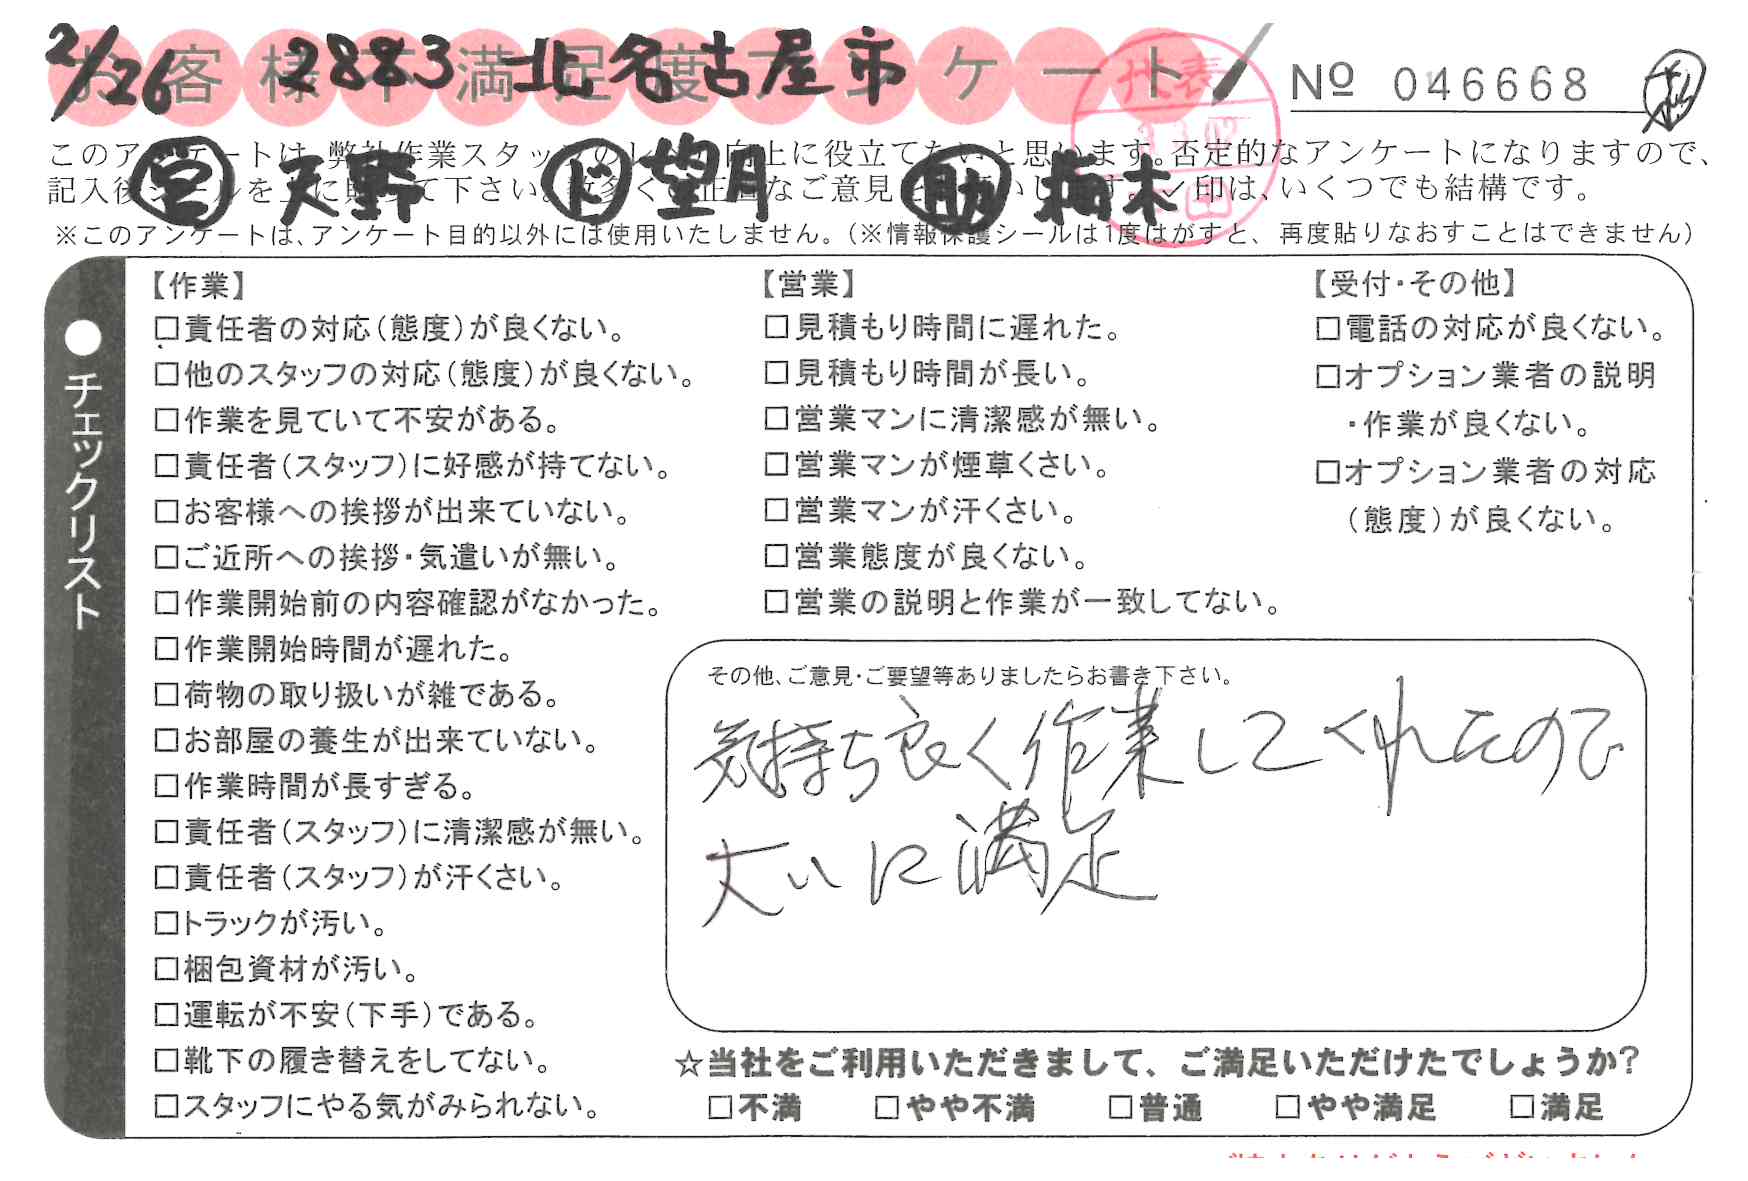 2/26 2883 北名古屋市
お客様不満足度アンケート
Nº 046668
代表
営 天野 ド 望月 助 梅木
このアンケートは、弊社作業スタッフのレベル向上に役立てたいと思います。否定的なアンケートになりますので、
記入後シールを上に貼って下さい。数多くの正直なご意見をお願いします。✓印は、いくつでも結構です。
※このアンケートは、アンケート目的以外には使用いたしません。（※情報保護シールは1度はがすと、再度貼りなおすことはできません）
●チェックリスト
【作業】
□責任者の対応（態度）が良くない。
□他のスタッフの対応（態度）が良くない。
□作業を見ていて不安がある。
□責任者（スタッフ）に好感が持てない。
□お客様への挨拶が出来ていない。
□ご近所への挨拶・気遣いが無い。
□作業開始前の内容確認がなかった。
□作業開始時間が遅れた。
□荷物の取り扱いが雑である。
□お部屋の養生が出来ていない。
□作業時間が長すぎる。
□責任者（スタッフ）に清潔感が無い。
□責任者（スタッフ）が汗くさい。
□トラックが汚い。
□梱包資材が汚い。
□運転が不安（下手）である。
□靴下の履き替えをしてない。
□スタッフにやる気がみられない。
【営業】
□見積もり時間に遅れた。
□見積もり時間が長い。
□営業マンに清潔感が無い。
□営業マンが煙草くさい。
□営業マンが汗くさい。
□営業態度が良くない。
□営業の説明と作業が一致してない。
【受付・その他】
□電話の対応が良くない。
□オプション業者の説明
・作業が良くない。
□オプション業者の対応
（態度）が良くない。
その他、ご意見・ご要望等ありましたらお書き下さい。
気持ち良く作業してくれたので
大いに満足
☆当社をご利用いただきまして、ご満足いただけたでしょうか？
□不満 □やや不満 □普通 □やや満足 □満足